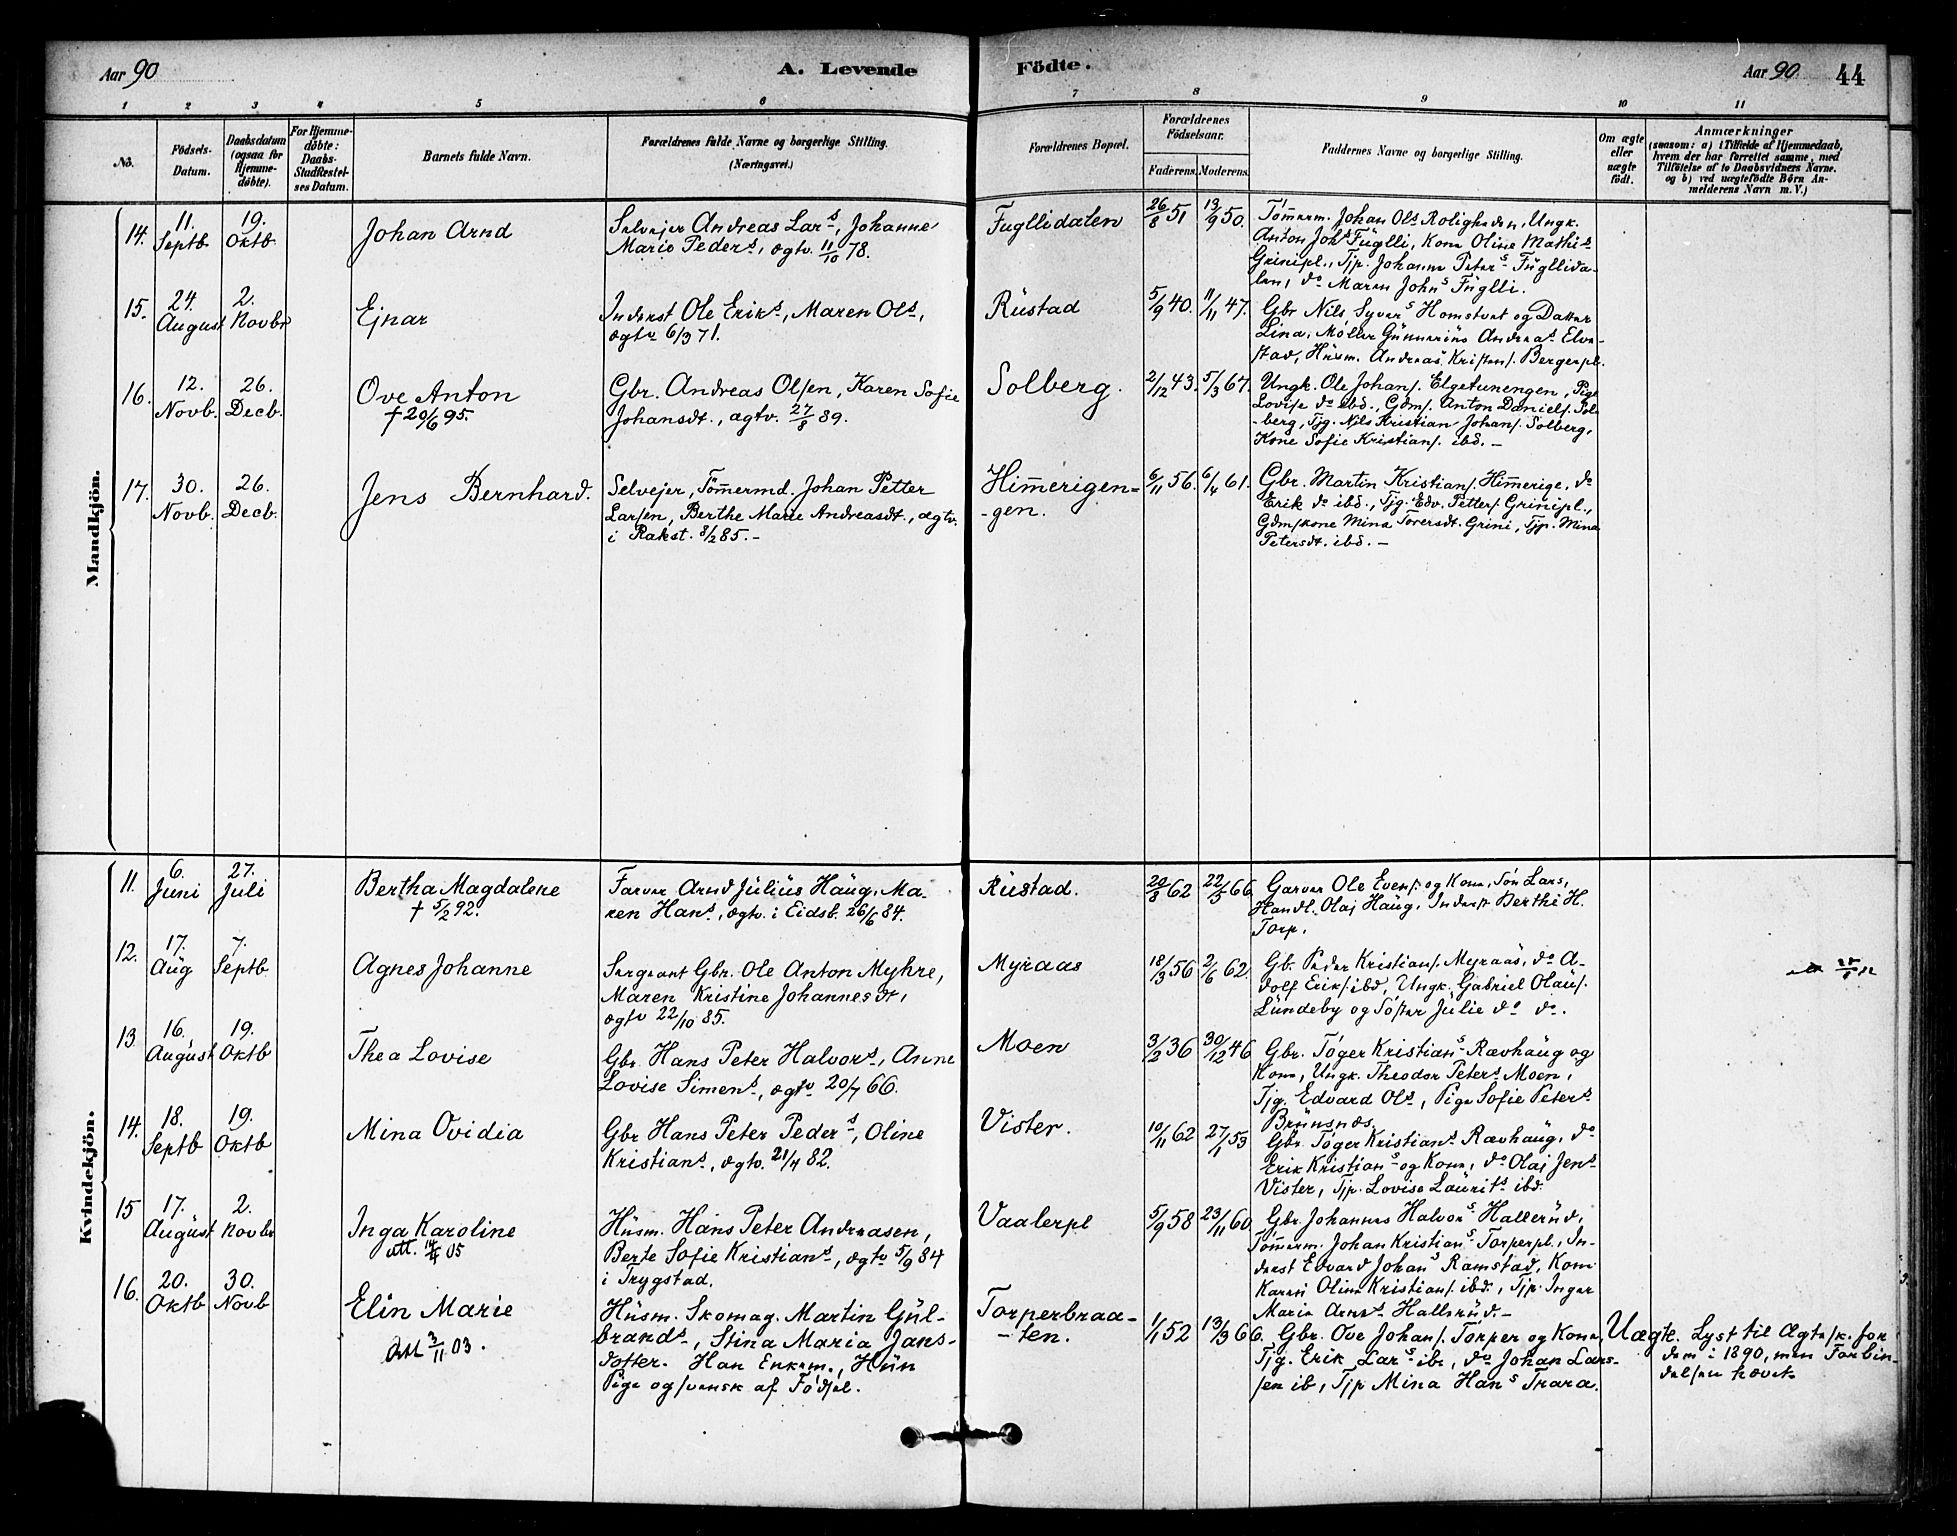 Aar 90
A. Levende
Födte.
Aar 90.
44
1 2 3 4 5 6 7 8 9 10 11
No.
Födsels-
Datum.
Daabsdatum
(ogsaa for
Hjemme-
døbte).
For Hjemme-
døbte:
Daabs-
Stadfæstel-
ses Datum.
Barnets fulde Navn.
Forældrenes fulde Navne og borgerlige Stilling.
(Næringsvei.)
Forældrenes Bopæl.
Forældrenes
Födselsaar.
Faderens.
Moderens.
Faddernes Navne og borgerlige Stilling.
Om ægte
eller
uægte
født.
Anmærkninger
(saasom: a) i Tilfælde af Hjemmedaab,
hvem der har forrettet samme, med
Tilføielse af to Daabsvidners Navne.
og b) ved uægtefødte Børn An-
melderens Navn m. V.)
Mandkjön.
14.
11.
Septb
19.
Oktb
Johan Arnd
Selvejer Andreas Lars, Johanne
Marie Peders, ægtv. 11/10 78.
Fugllidalen
26/8 51
13/9 50.
Tömmerm. Johan Ols Roligheden, Ungk.
Anton Johs Fuglli, Kone Oline Mathis
Grinipl., Tjp. Johanne Peters Fugllida-
len, do Maren Johns Fuglli.
15.
24.
August
2.
Novbr
Ejnar
Inderst Ole Eriks, Maren Ols,
ægtv 6/3 71.
Rustad
5/9 40.
11/11 47.
Gbr Nils Syvers Homstvet og Datter
Lina, Møller Gunnerius Andreas Elve-
stad, Husm. Andreas Kristens. Bergerpl.
16.
12.
Novb.
26.
Decb.
Ove Anton
† 20/6 95.
Gbr. Andreas Olsen, Karen Sofie
Johansdt., ægtv. 27/8 89.
Solberg.
2/12 43.
5/3 67.
Ungk. Ole Johans. Elgetunengen, Pige
Lovise do ibd., Gdms. Anton Daniels. Sol-
-berg, Tjg. Nils Kristian Johans. Solberg,
Kone Sofie Kristians. ibd. -
17.
30.
Novb.
26.
Decb.
Jens Bernhard.
Selvejer, Tömmermd. Johan Petter
Larsen, Berthe Marie Andreasdt., ægtv.
i Rakst. 8/2 85. -
Himerigen-
-gen.
6/11 56.
6/4 61.
Gbr. Martin Kristians. Himerige, do
Erik do ibd., Tjg. Edv. Petters. Grinipl.,
Gdmskone Mina Torersdt. Grini, Tjp. Mina
Petersdt. ibd. -
Kvindekjön.
11.
6.
Juni
27.
Juli
Bertha Magdalene
† 5/2 92.
Farver Arnd Julius Haug, Ma-
ren Hans, ægtv. i Eidsb. 26/6 84.
Rustad.
20/8 62
22/5 66
Garver Ole Evens. og Kone, Søn Lars,
Handl. Olaj Haug, Inderst Berthe H.
Torp.
12.
17.
Aug
7.
Septb
Agnes Johanne
Sergeant Gbr. Ole Anton Myhre,
Maren Kristine Johannesdt,
ægtv 22/10 85.
Myraas
18/3 56
2/6 62.
Gb. Peder Kristians. Myraas, do A-
dolf Eriks. ibd, Ungk. Gabriel Olaus.
Lundeby og Söster Julie do do.
13
16.
August
19.
Oktb
Thea Lovise
Gbr. Hans Peter Halvors, Anne
Lovise Simens, ægtv 20/7 66.
Moen
3/2 36
30/12 46
Gbr. Töger Kristians Rævhaug og
Kone, Ungk. Theodor Peters Moen,
Tjg. Edvard Ols, Pige Sofie Peters
Brunsnæs.
14.
18.
Septb
19.
Oktb
Mina Ovidia
Gbr Hans Peter Peders, Oline
Kristians, ægtv. 21/4 82.
Vister.
10/11 62
27/1 53
Gbr. Töger Kristians Rævhaug, do
Erik Kristians og Kone, do Olaj Jens
Vister, Tjp. Lovise Laurits ibd.
15
17.
August
2.
Novbr
Inga Karoline
Husm. Hans Peter Andreasen,
Berte Sofie Kristians, ægtv 5/9 84
i Trygstad.
Vaalerpl
5/9 58
23/11 60
Gbr. Johannes Halvors Hallerud,
Tömmerm. Johan Kristians Torperpl., In-
derst Edvard Johans Ramstad, Kone
Karen Oline Kristians. ibd., Tjp. Inger
Marie Arnes Hallerud. -
16.
20.
Oktb
30.
Novb
Elin Marie
Att 3/11 03.
Husm. Skomag. Martin Gul-
brands, Stina Maria Jans-
dotter. Han Enkem., Hun
Pige og svensk af Födsel.
Torperbraa-
-ten.
1/1 52
13/3 66.
Gbr. Ove Johans. Torper og Kone,
Tjg. Erik Lars ibd, do Johan Lars-
sen ib, Tjp Mina Hans Trara.
Uægte.
Lyst til Ægtesk. for
dem i 1890, men Forbin-
delsen hævet